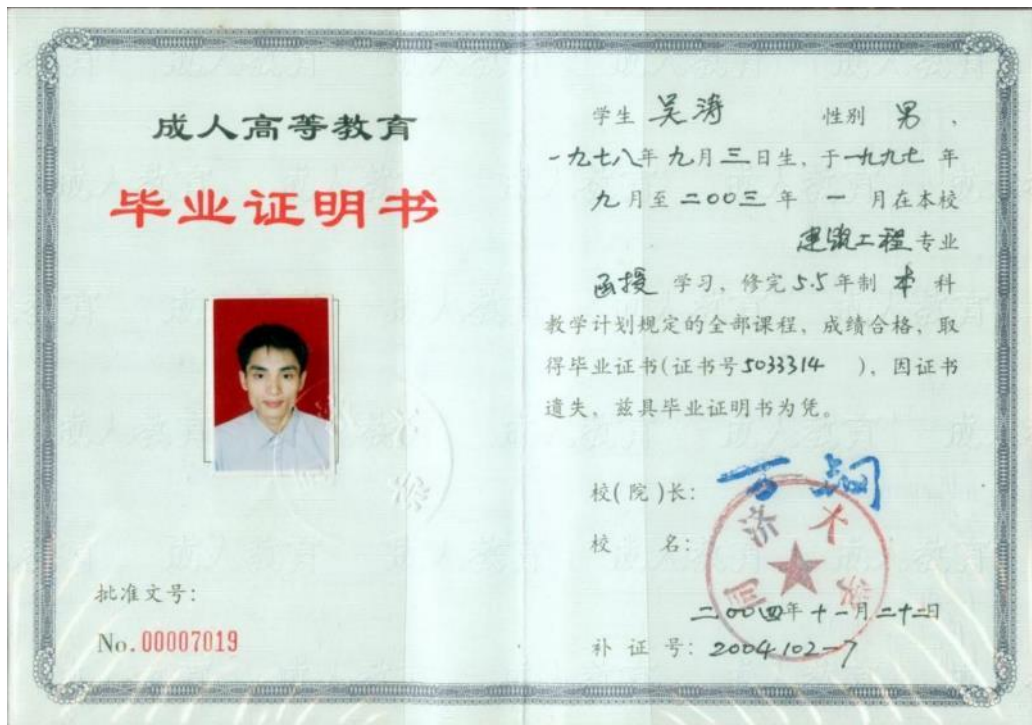 成人高等教育
毕业证明书
批准文号:
No.00007019
学生 吴涛 性别 男 、
一九七八年九月三日生、于一九九七年
九月至二00三年 一 月在本校
建筑工程专业
函授 学习, 修完5.5年制 本 科
教学计划规定的全部课程、成绩合格、取
得毕业证书(证书号5033314 )、因证书
遗失、兹具毕业证明书为凭。
校(院)长: 万钢
校 名:
同济大学
二00四年十一月二十二日
补 证 号: 2004102-7